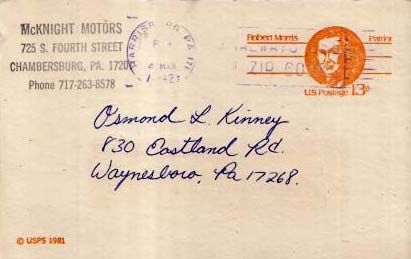 McKNIGHT MOTORS
725 S. FOURTH STREET
CHAMBERSBURG, PA. 1720
Phone 717-263-8578
HARRISBURG, PA 171
PM
MAR
ALWAYS
ZIP CO
Robert Morris Patriot
U.S. Postage 13¢
Osmond L. Kinney
830 Eastland Rd.
Waynesboro, Pa 17268.
© USPS 1981